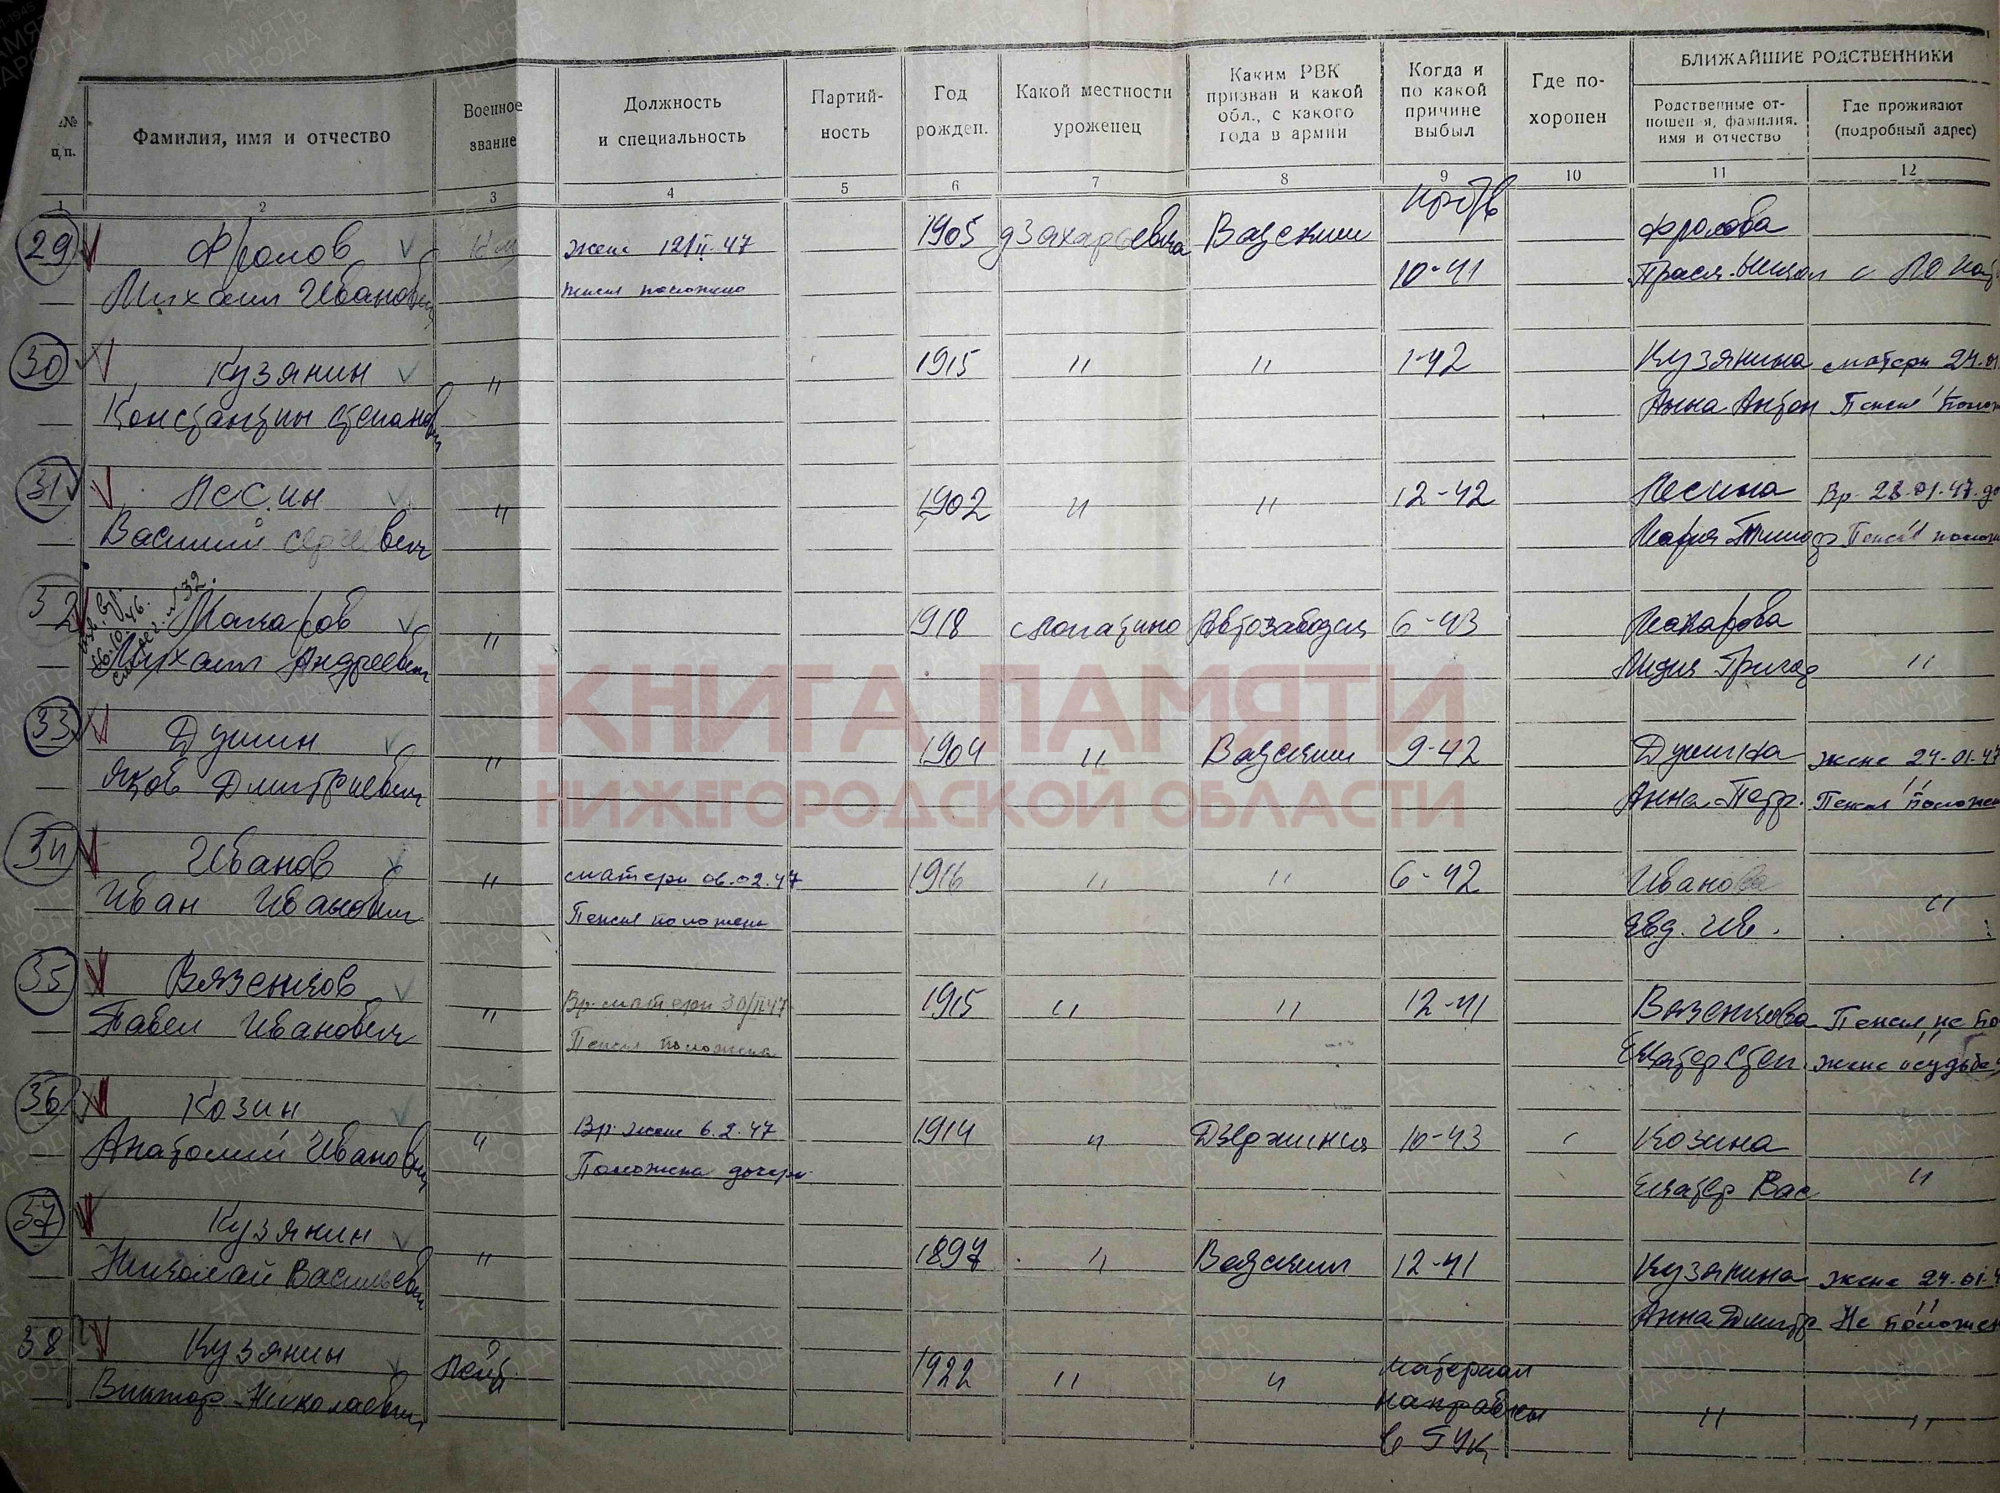 БЛИЖАЙШИЕ РОДСТВЕННИКИ
№ п, п.
Фамилия, имя и отчество
Военное звание
Должность и специальность
Партийность
Год рожден.
Какой местности уроженец
Каким РВК призван и какой обл., с какого года в армии
Когда и по какой причине выбыл
Где похоронен
Родственные отношения, фамилия, имя и отчество
Где проживают (подробный адрес)
1 2 3 4 5 6 7 8 9 10 11 12
29 Фролов жене 12/II-47 1905 Вадским Фролова
Михаил Иванович 10-41
30 Кузянин " 1915 " " 1-42 Кузянина матери
Константин Степанович Анна Антон
31 Лесин " 1902 " " 12-42 Лесина Вр. 28.01.47.
Василий Сергеевич Мария
32 Макаров " 1918 Автозаводск 6-43 Макарова
Михаил Андреевич Лидия Григор "
33 Душин " 1904 " Вадским 9-42 Душина жене 24-01-47
Яков Дмитриевич Анна Петр.
34 Иванов " матери 06.02.47 1916 " " 6-42 Иванова
Иван Иванович Пенсия положена Евд. Ив. "
35 Вязенков " Вр. матери 1915 " " 12-41 Вязенкова Пенсия не
Павел Иванович Пенсия положена Екатер Степ. жене
36 Козин " Вр. жене 6.2.47 1914 " Дзержинск 10-43 Козина
Анатолий Иванович Положена дочери Екатер Вас "
37 Кузянин " 1897 " Вадским 12-41 Кузянина жене 24-01-4
Николай Васильевич Анна Дмитр Не положен
38 Кузянин Лейт. 1922 " " материал
Виктор Николаевич направлен " "
в ГУК
КНИГА ПАМЯТИ
НИЖЕГОРОДСКОЙ ОБЛАСТИ
ПАМЯТЬ НАРОДА